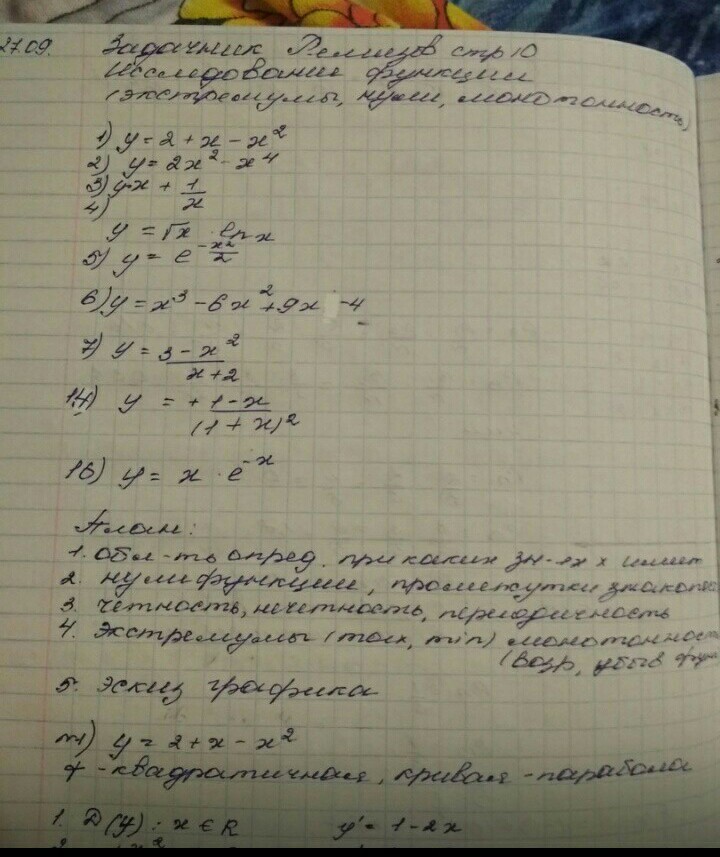 27.09. Задачник Ремизов стр 10
Исследование функции
(экстремумы, нули, монотонность)
1) y = 2 + x - x²
2) y = 2x² - x⁴
3) y = x + 1/x
4)
y = √x · ln x
5) y = e^(-x²/2)
6) y = x³ - 6x² + 9x - 4
7) y = (3 - x²)/(x + 2)
14) y = + (1 - x)/(1 + x)²
16) y = x · e^(-x)
План:
1. Обл-ть опред. при каких зн-ях x имеет
2. нули функции, промежутки
3. четность, нечетность, периодичность
4. экстремумы (max, min) монотонность
(возр, убыв
5. эскиз графика
№1) y = 2 + x - x²
ф - квадратичная, кривая - парабола
1. D(y) : x ∈ R y' = 1 - 2x